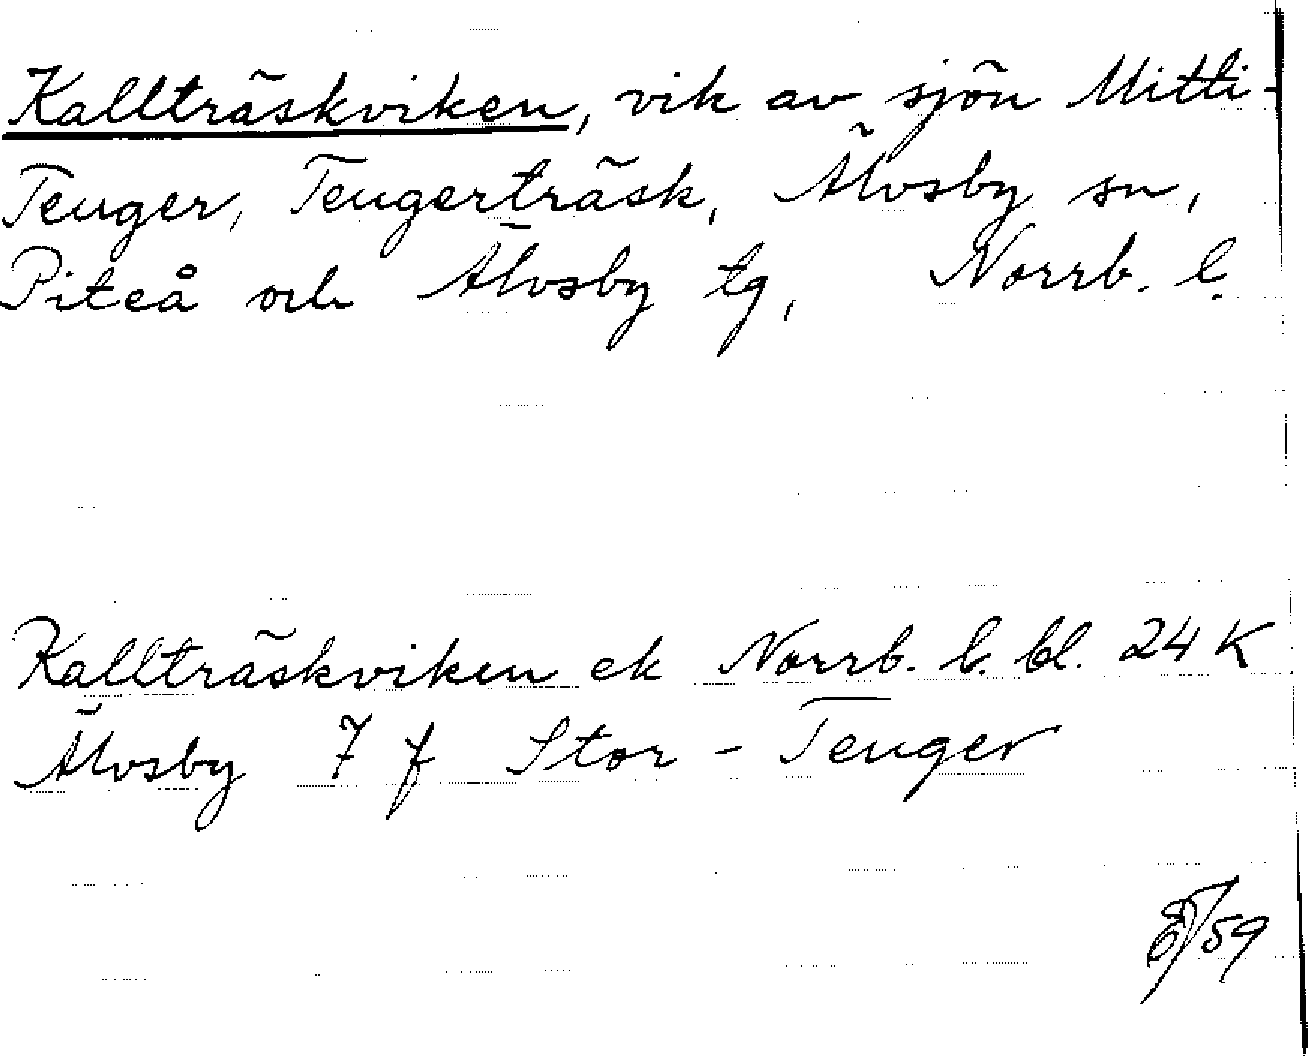 Kallträskviken, vik av sjön Mitti-
Teuger, Teugerträsk, Älvsby sn,
Piteå och Älvsby tg, Norrb. l.
Kallträskviken ek Norrb. l. bl. 24 K
Älvsby 7 f Stor-Teuger
/59